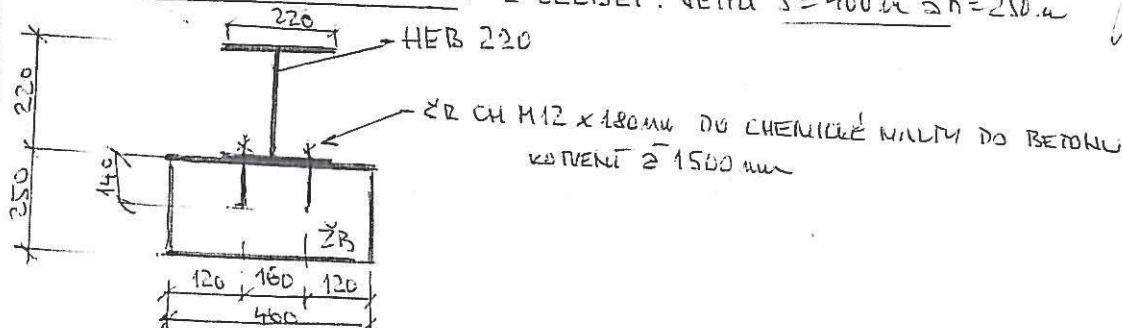 Š=400 ... h=250
220
HEB 220
220
CH M12 x 180mm DO CHEMICKÉ MALTY DO BETONU
KOTVENÍ 1500 mm
140
250
ŽB
120 160 120
400